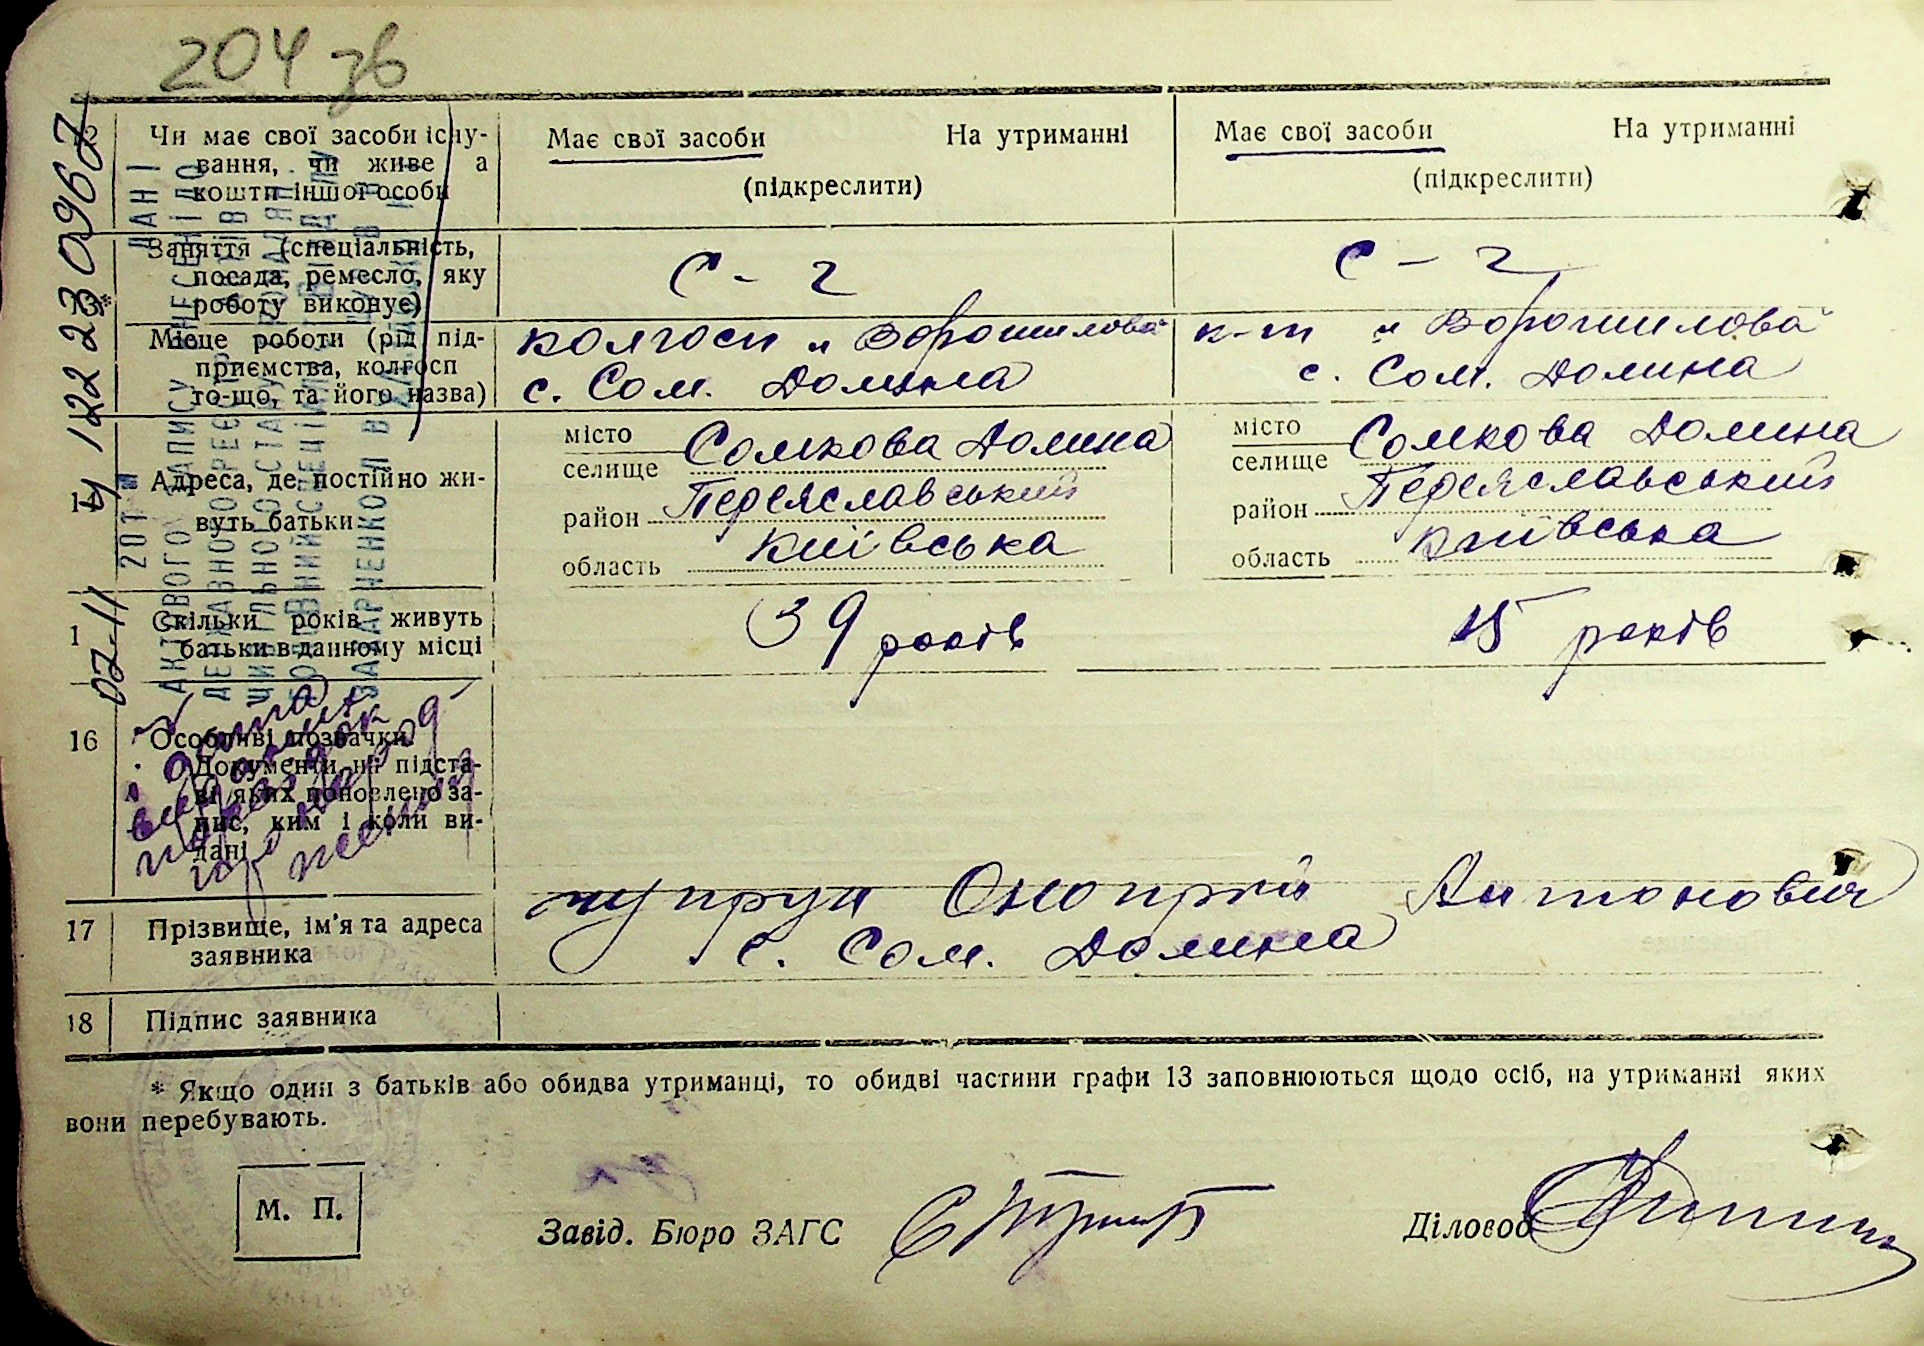 204 зв
Чи має свої засоби існу-
вання, чи живе а
кошти іншої особи
Має свої засоби
На утриманні
(підкреслити)
Має свої засоби
На утриманні
(підкреслити)
Заняття (спеціальність,
посада, ремесло, яку
роботу виконує)
С - г
С - г
Місце роботи (рід під-
приємства, колгосп
то-що, та його назва)
колгосп „Ворошилова"
с. Сом. Долина
к-т „Ворошилова"
с. Сом. Долина
Адреса, де постійно жи-
вуть батьки
місто
селище
Сомкова Долина
район
Переяславський
область
Київська
місто
селище
Сомкова Долина
район
Переяславський
область
Київська
1
Скільки років живуть
батьки в данному місці
39 років
15 років
16
Особливі позначки.
Документи, на підста-
ві яких поновлено за-
пис, ким і коли ви-
дані
17
Прізвище, ім'я та адреса
заявника
Чупрун Онопрій Антонович
с. Сом. Долина
18
Підпис заявника
* Якщо один з батьків або обидва утриманці, то обидві частини графи 13 заповнюються щодо осіб, на утриманні яких
вони перебувають.
М. П.
Завід. Бюро ЗАГС
Діловод
ДАНІ
АКТОВОГО ЗАПИСУ ВНЕСЕНІ ДО
ДЕРЖАВНОГО РЕЄСТРУ АКТІВ
ЦИВІЛЬНОГО СТАНУ ГРОМАДЯН
02 11 201
122 23 0967